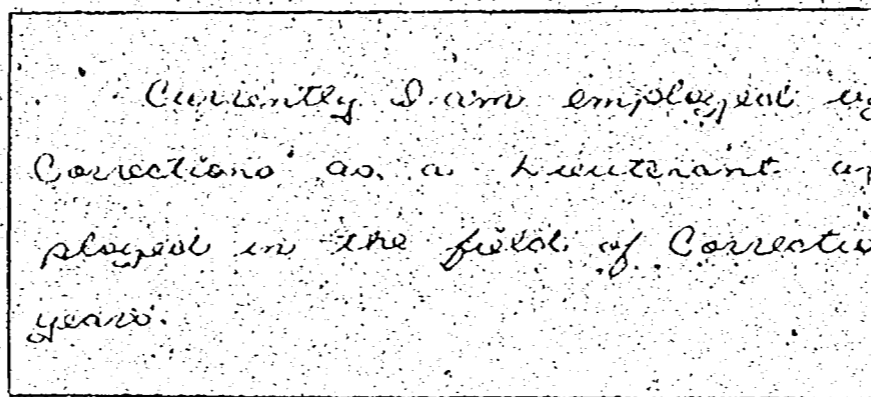 Currently I am employed
Corrections as a Lieutenant
ployed in the field of Correctio
years.